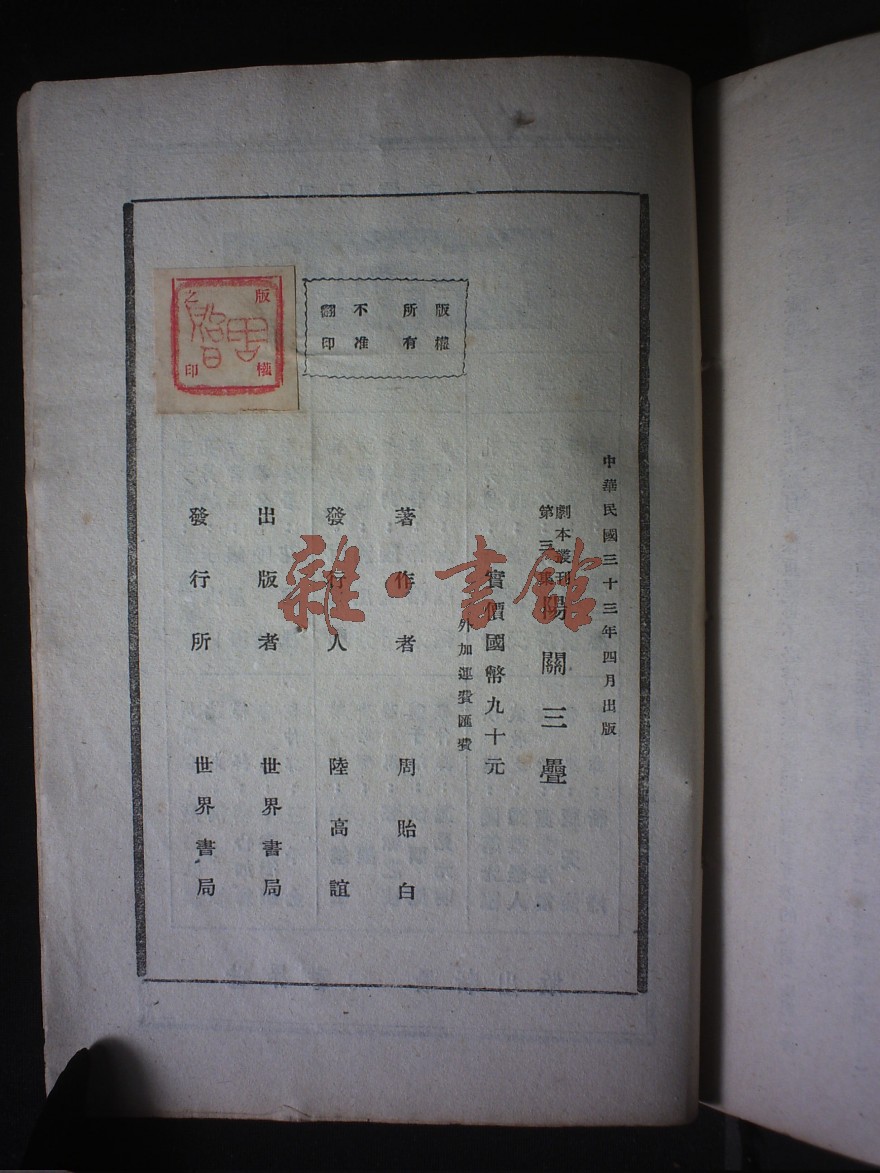 中華民國三十三年四月出版
劇本叢刊
第三集
陽關三疊
實價國幣九十元
外加運費匯費
版權
所有
不准
翻印
著作者 周貽白
發行人 陸高誼
出版者 世界書局
發行所 世界書局
版權
之印
周貽白
雜·書館